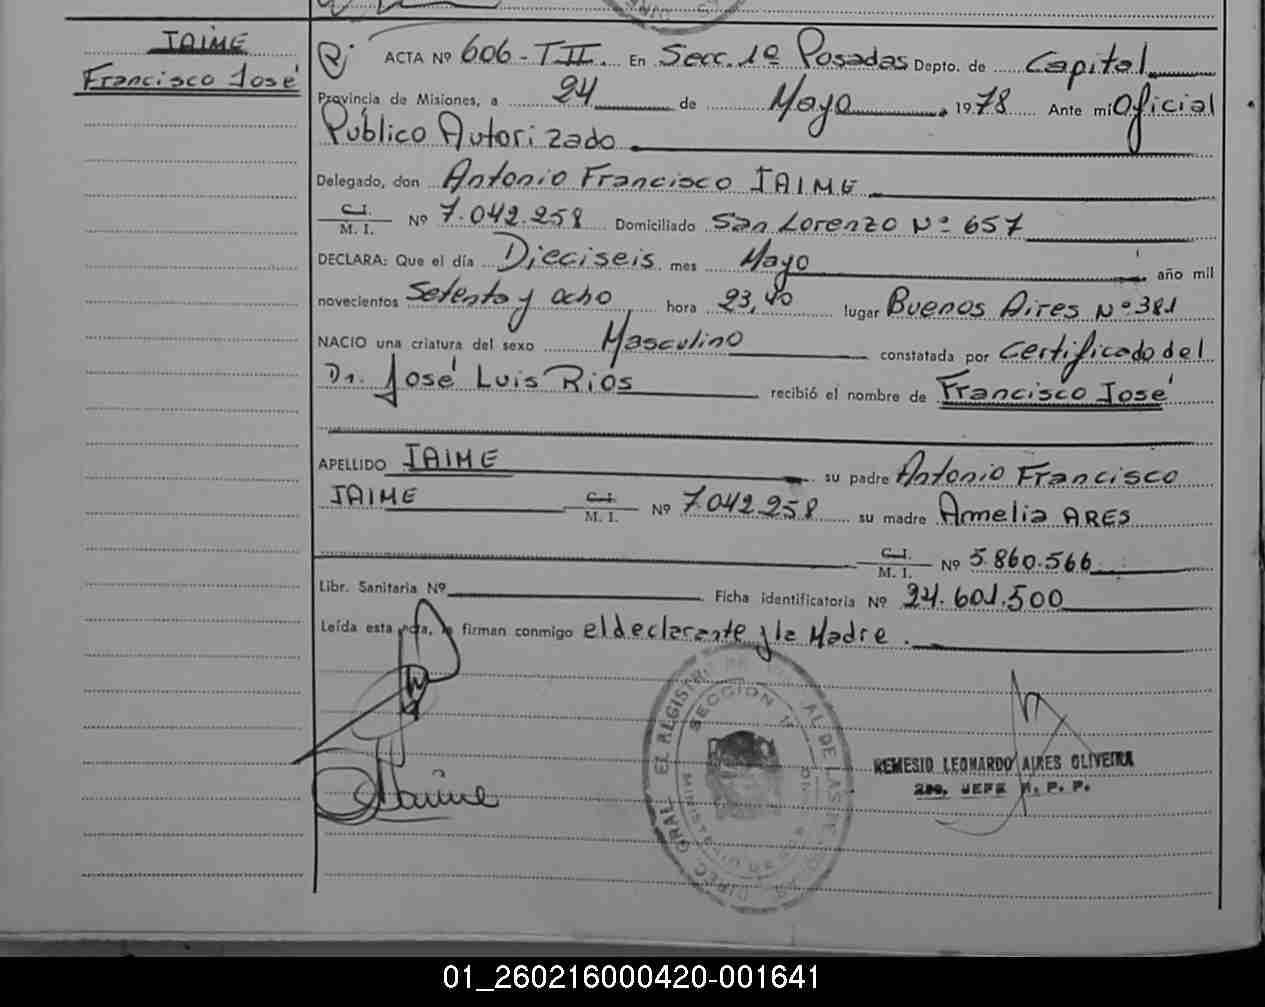 JAIME
Francisco José
ACTA Nº 606-TII. En Secc. 1º Posadas Depto. de Capital
Provincia de Misiones, a 24 de Mayo 1978 Ante mi Oficial
Público Autorizado
Delegado, don Antonio Francisco JAIME
C.I.
M. I. Nº 7.042.258 Domiciliado San Lorenzo Nº 657
DECLARA: Que el día Dieciseis mes Mayo año mil
novecientos Setenta y ocho hora 23,40 lugar Buenos Aires Nº 381
NACIO una criatura del sexo Masculino constatada por Certificado del
Dr. José Luis Rios recibió el nombre de Francisco José
APELLIDO JAIME su padre Antonio Francisco
JAIME C.I.
M. I. Nº 7.042.258 su madre Amelia ARES
C.I.
M. I. Nº 5.860.566
Libr. Sanitaria Nº Ficha identificatoria Nº 24.601.500
Leída esta acta, la firman conmigo el declarante y la Madre.
SECCION 1ª
REMESIO LEONARDO AIRES OLIVEIRA
JEFE R. P. P.
01_260216000420-001641